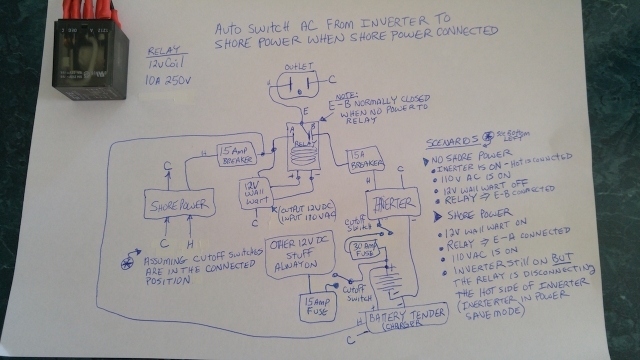 AUTO SWITCH AC FROM INVERTER TO
SHORE POWER WHEN SHORE POWER CONNECTED
RELAY
12V Coil
10A 250V
OUTLET
H
C
E
NOTE:
E-B NORMALLY CLOSED
WHEN NO POWER TO
RELAY
A
B
RELAY
H
15 Amp
BREAKER
15A
BREAKER
C
SHORE POWER
C
H
12V
Wall
WART
C
OUTPUT 12VDC
INPUT 110VAC
H
C
INVERTER
CUTOFF
SWITCH
30 AMP
FUSE
OTHER 12V DC
STUFF
ALWAYON
15 AMP
FUSE
CUTOFF
SWITCH
H
C
BATTERY TENDER
(CHARGER)
ASSUMING CUTOFF SWITCHES
ARE IN THE CONNECTED
POSITION.
SCENARIOS
SEE BOTTOM
LEFT
NO SHORE POWER
• INERTER IS ON - Hot is connected
• 110V AC IS ON
• 12V WALL WART OFF
• RELAY → E-B CONNECTED
SHORE POWER
• 12V WALL WART ON
• RELAY → E-A CONNECTED
• 110VAC IS ON
• INVERTER STILL ON BUT
THE RELAY IS DISCONNECTING
THE HOT SIDE OF INVERTER
(INERTERTER IN POWER
SAVE MODE)